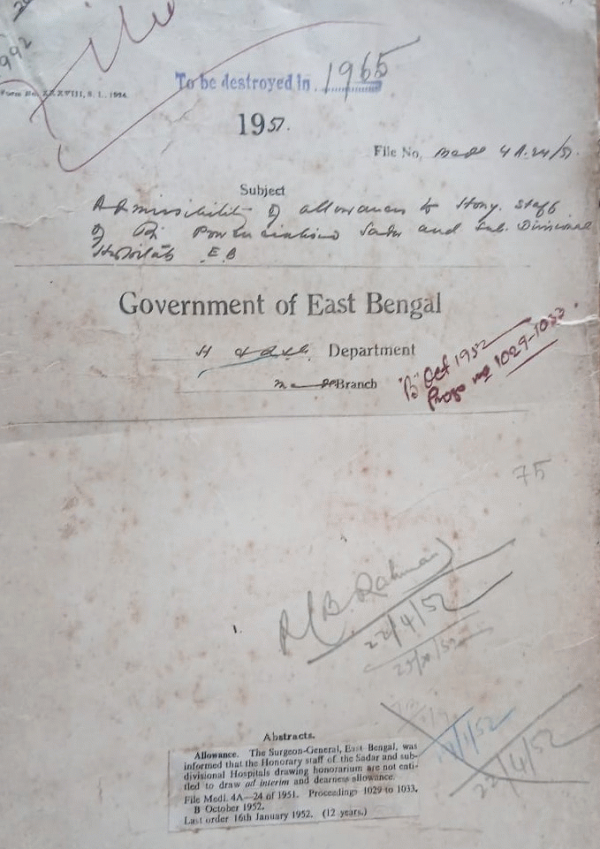 1992
Form No. XXXVIII, S. I., 1924.
To be destroyed in 1965
1951.
File No. Medl 4A-24/51.
Subject
Admissibility of allowances to Hony. staff
of the Provincialised Sadar and Sub-Divisional
Hospitals E.B
Government of East Bengal
H Department
Medl Branch
"B" Oct 1952
Progs nos 1029-1033.
75
B. Rahman
22/4/52
22/4/52
Abstracts.
Allowance. The Surgeon-General, East Bengal, was
informed that the Honorary staff of the Sadar and sub-
divisional Hospitals drawing honorarium are not enti-
tled to draw ad interim and dearness allowance.
File Medl. 4A—24 of 1951. Proceedings 1029 to 1033,
B October 1952.
Last order 16th January 1952. (12 years.)